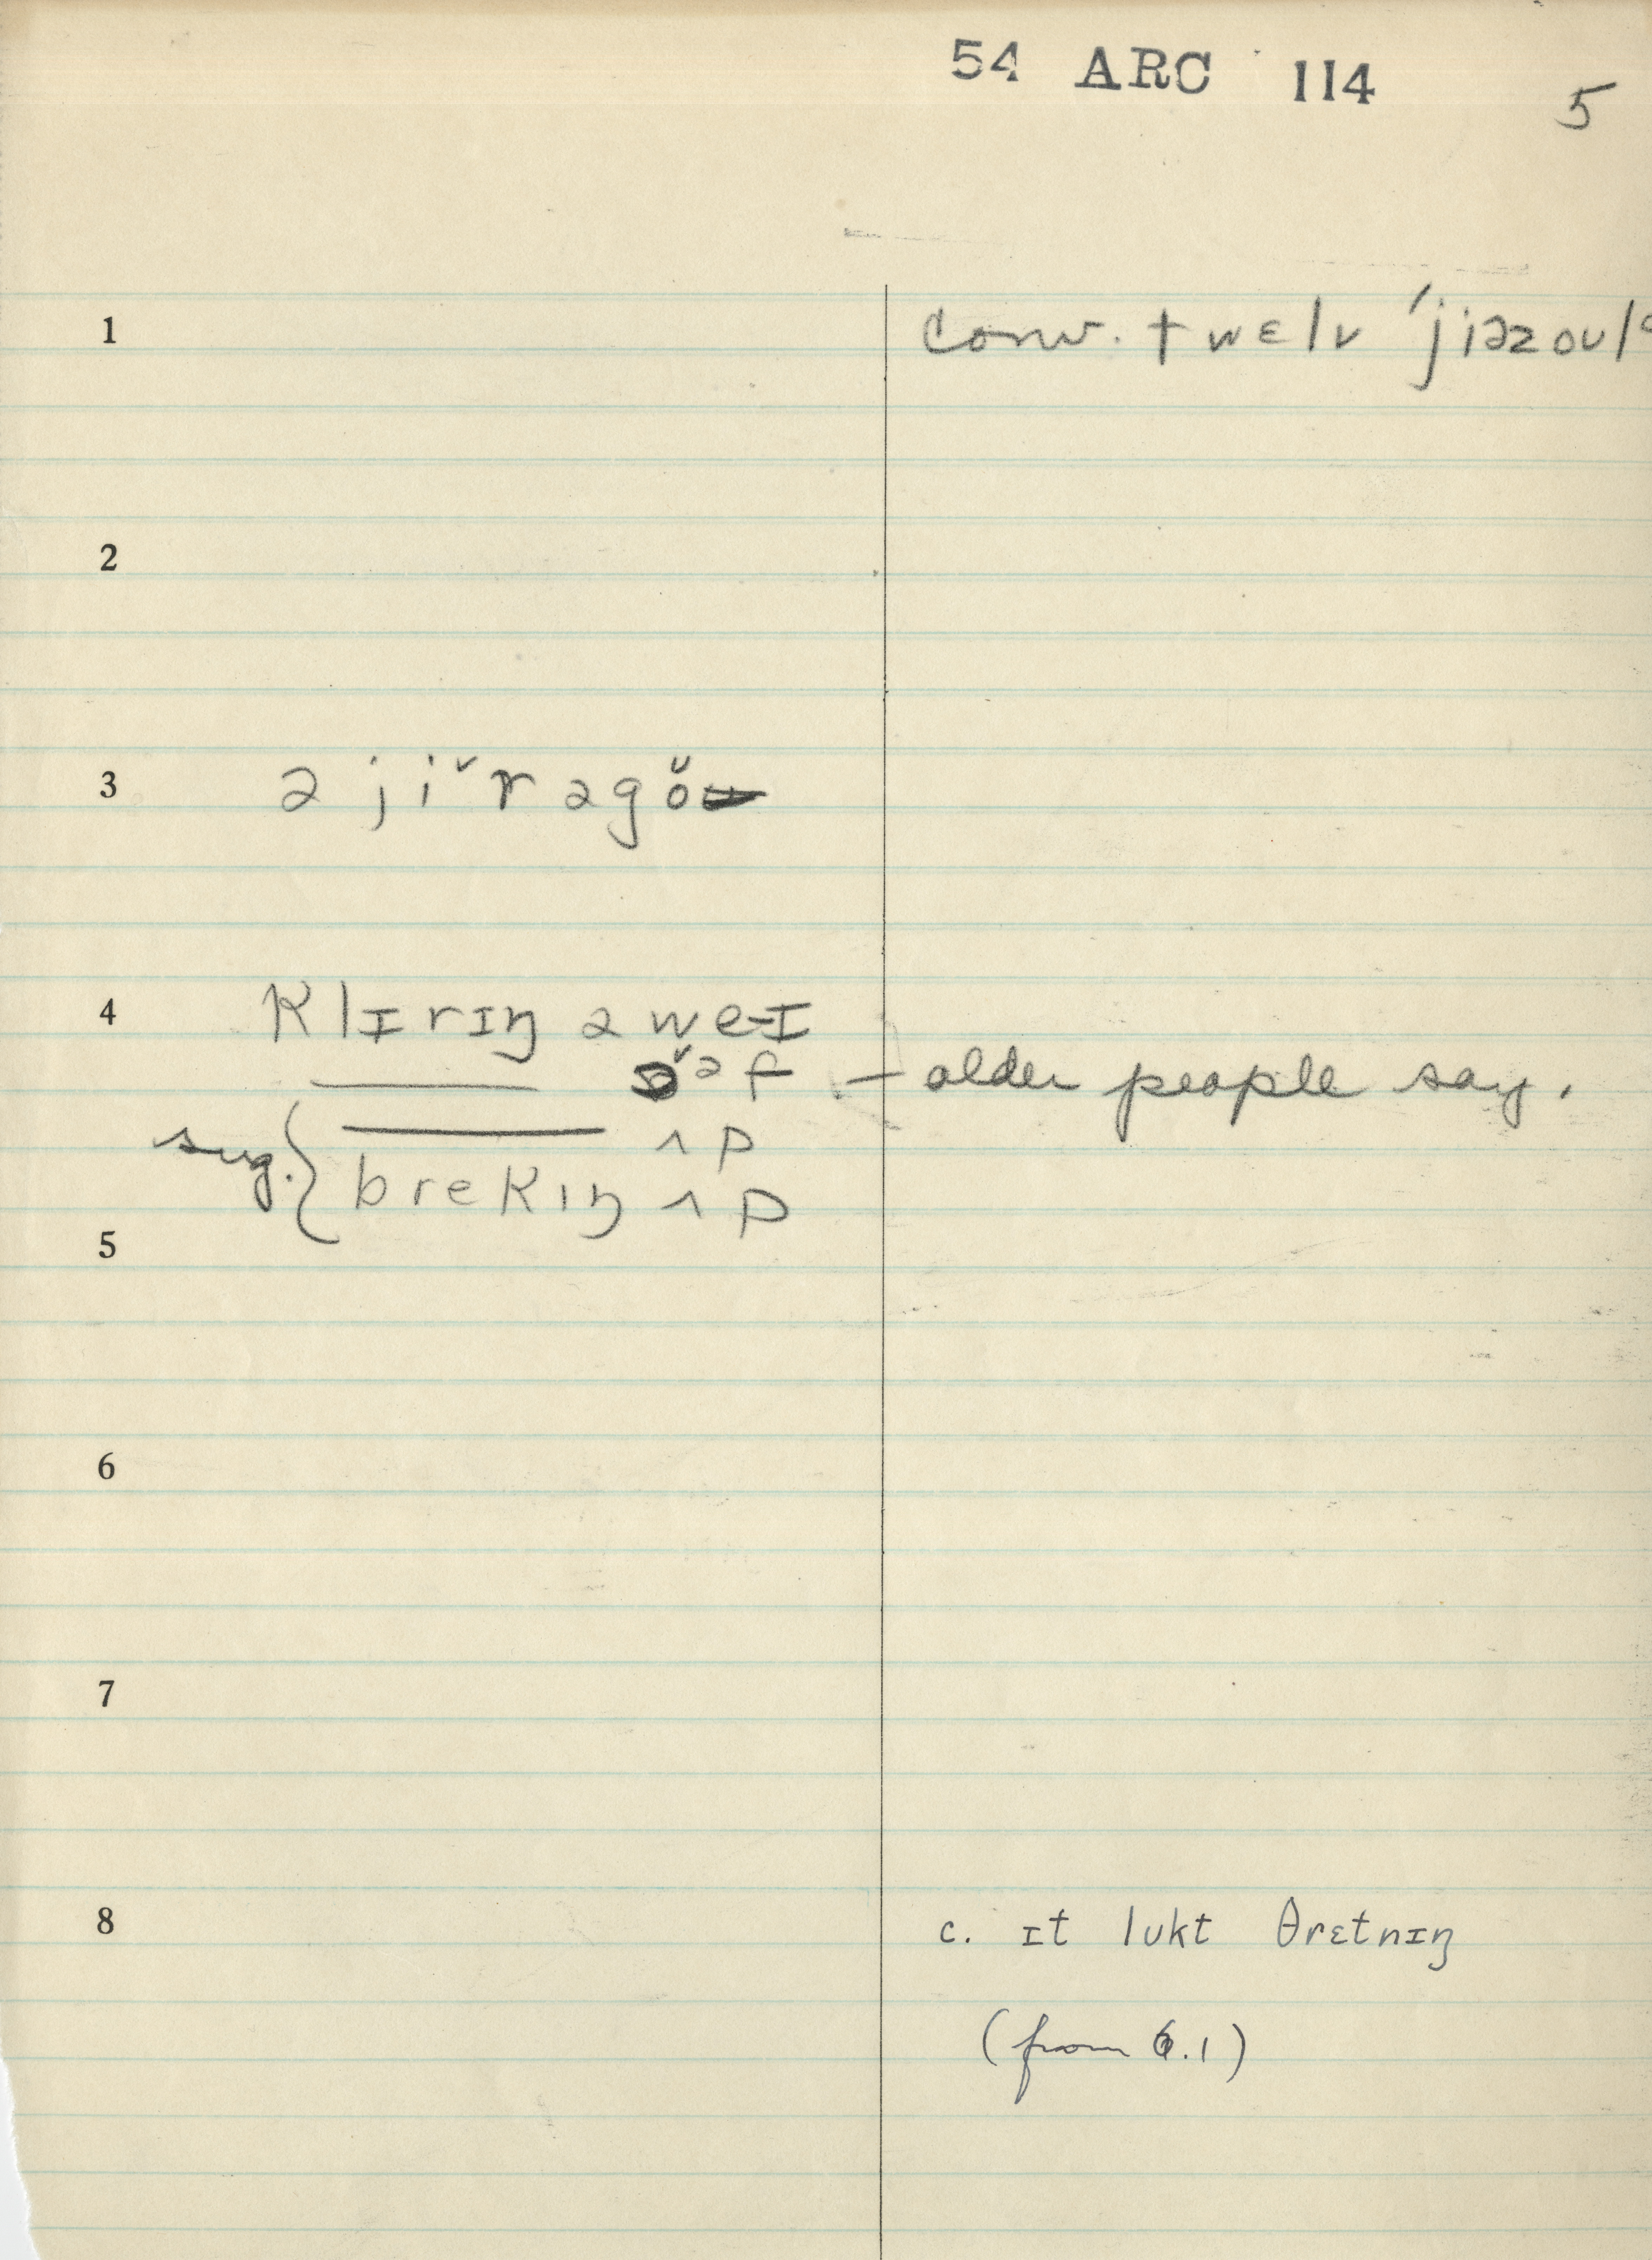 54 ARC 114 5
1 conv. twɛlv ˈjiəzoʊl
2
3 ə jiˇr əgŏ
4 klɪrɪŋ əweɪ
ɔˇəf — older people say.
sug. { ʌp
brekɪŋ ʌp
5
6
7
8 c. ɪt lʊkt θrɛtnɪŋ
(from 6.1)